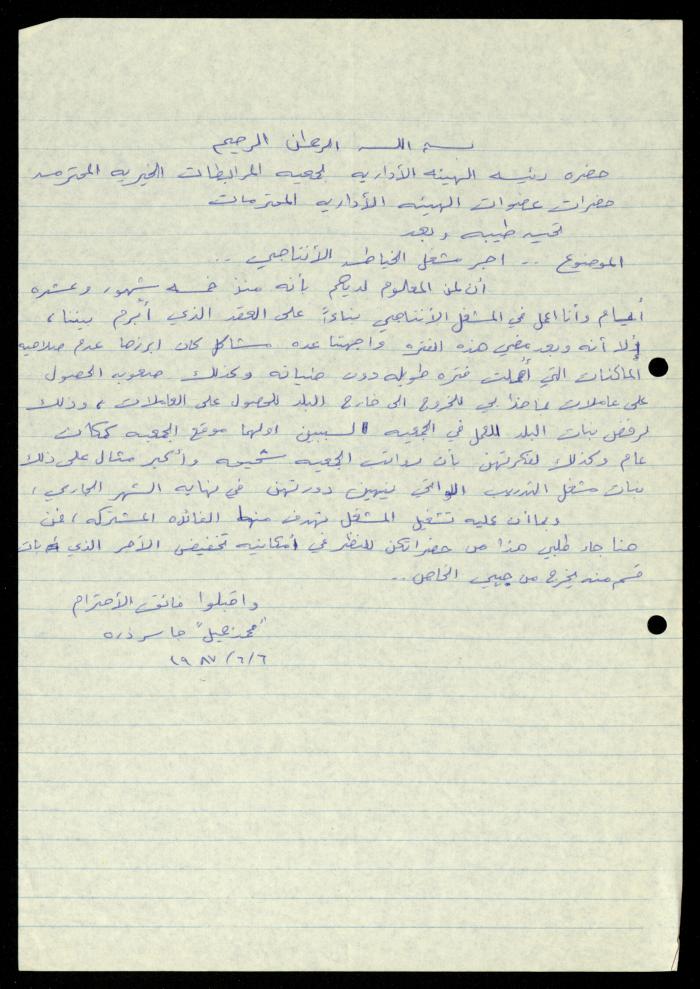 بسم الله الرحمان الرحيم
حضره رئيسه الهيئه الأداريه لجمعيه المرابطات الخيريه المحترمه
حضرات عضوات الهيئه الأداريه المحترمات
تحيه طيبه وبعد
الموضوع .. اجر مشغل الخياطه الأنتاجي ..
أن لمن المعلوم لديكم بأنه منذ خمسه شهور وعشره
أيام وأنا اعمل في المشغل الأنتاجي بناءً على العقد الذي أبرم بيننا ،
إلا أنه وبعد مضي هذه الفتره واجهتنا عده مشاكل كان ابرزها عدم صلاحيه
الماكنات التي أهملت فتره طويله دون صيانه وكذلك صعوبه الحصول
على عاملات مما حذا بي للخروج الى خارج البلد للحصول على العاملات ، وذلك
لرفض بنات البلد للعمل في الجمعيه لسببين اولها موقع الجمعيه كمكان
عام وكذلك لفكرتهن بأن رواتب الجمعيه شحيحه وأكبر مثال على ذلك
بنات مشغل التدريب اللواتي ينهين دورتهن في نهايه الشهر الجاري ،
وبما أن عمليه تشغيل المشغل تهدف منها الفائده المشتركه ، فمن
هنا جاء طلبي هذا من حضراتكن للنظر في أمكانيه تخفيض الأجر الذي بات
قسم منه يخرج من جيبي الخاص ..
واقبلوا فائق الأحترام
جاسر دره
١٩٨٧/٦/٦